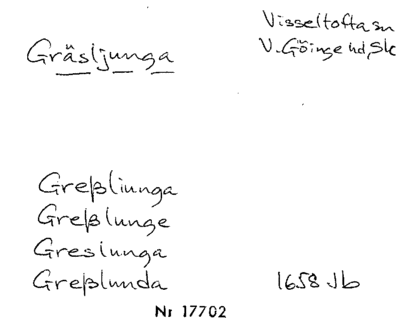 Visseltofta sn
Gräsljunga
V. Göinge hd, Sk
Greßliunga
Greßlunge
Greslunga
Greßlunda 1658 Jb
Nr 17702